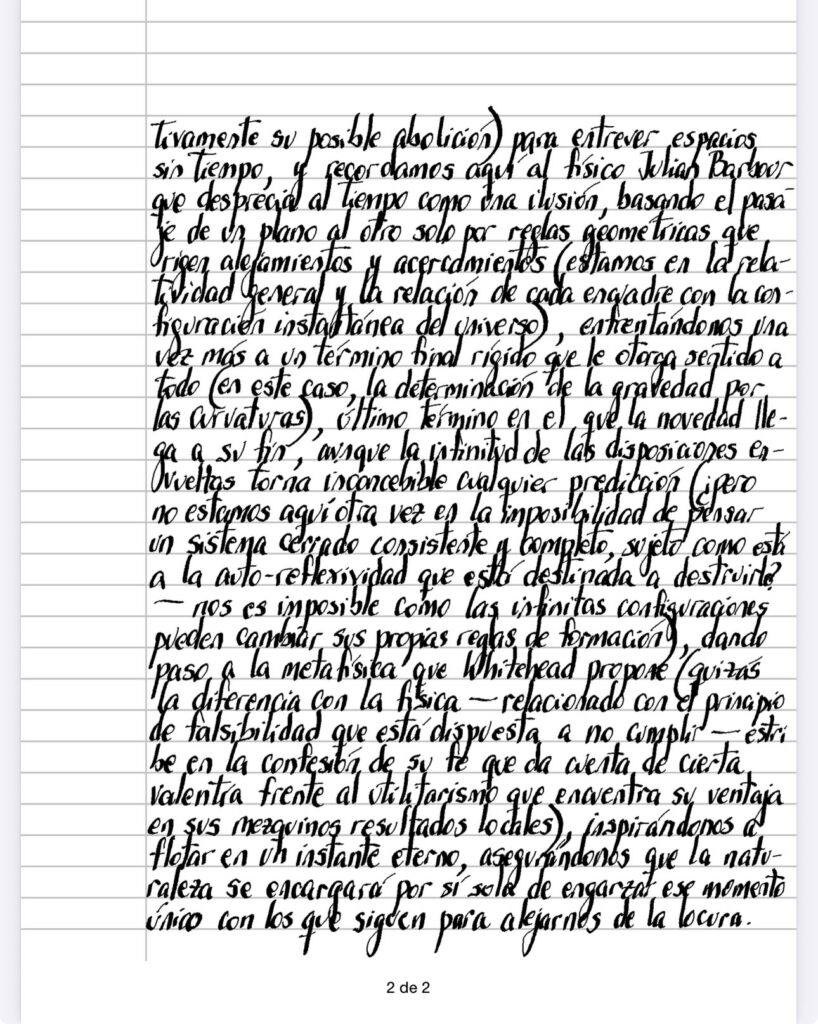 tivamente su posible abolición) para entrever espacios
sin tiempo, y recordamos aquí al físico Julian Barbour
que desprecia al tiempo como una ilusión, basando el pasa
je de un plano al otro solo por reglas geometricas que
rigen alejamientos y acercamientos (estamos en la rela-
tividad general y la relación de cada encuadre con la con-
figuración instantánea del universo), enfrentándonos una
vez más a un término final rígido que le otorga sentido a
todo (en este caso, la determinación de la gravedad por
las curvaturas), último término en el que la novedad lle-
ga a su fin, aunque la infinitud de las disposiciones en-
vueltas torna inconcebible cualquier predicción (¿pero
no estamos aquí otra vez en la imposibilidad de pensar
un sistema cerrado consistente y completo, sujeto como está
a la auto-reflexividad que está destinada a destruirle?
— nos es imposible como las infinitas configuraciones
pueden cambiar sus propias reglas de formación), dando
paso a la metafísica que Whitehead propone (quizás
la diferencia con la física — relacionado con el principio
de falsibilidad que está dispuesta a no cumplir — estri
be en la confesión de su fe que da cuenta de cierta
valentía frente al utilitarismo que encuentra su ventaja
en sus mezquinos resultados locales), inspirándonos a
flotar en un instante eterno, asegurándonos que la natu-
raleza se encargará por sí sola de engarzar ese momento
único con los que siguen para alejarnos de la locura.
2 de 2